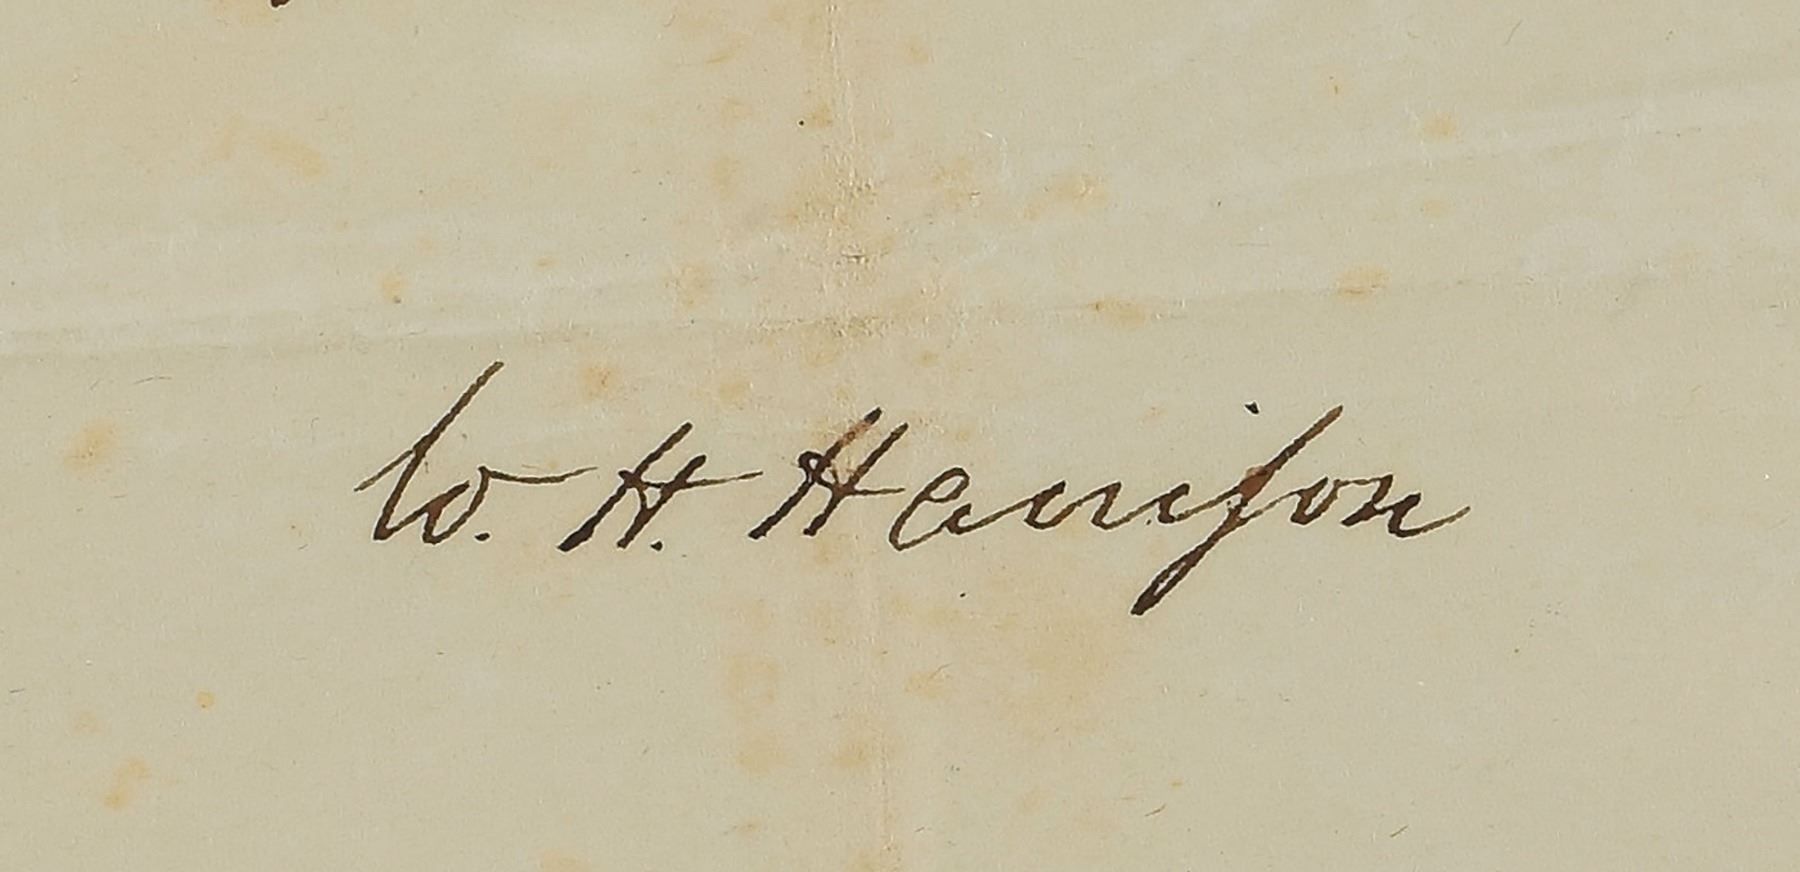 W. H. Harrison